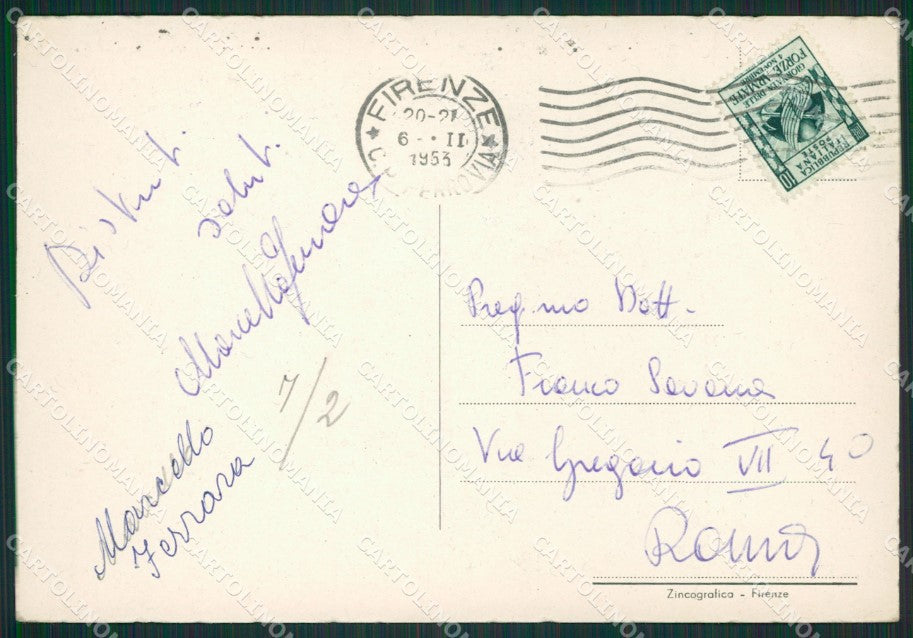 FIRENZE
20-21
6-•II
1953
FERROVIA
GIORNATA DELLE
FORZE ARMATE
4 NOVEMBRE
REPUBBLICA
ITALIANA
POSTE
10
Distinti
saluti
Marcello Ferrara
Marcello
Ferrara
7/2
Preg.mo Dott.
Franco Savona
Via Gregorio VII 40
Roma
Zincografica - Firenze
CARTOLINOMANIA